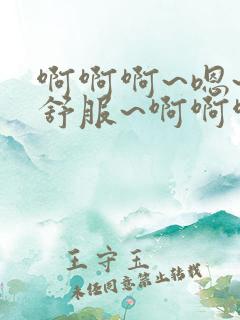 啊啊啊~嗯~
舒服~啊啊
王守玉
未经同意禁止转载